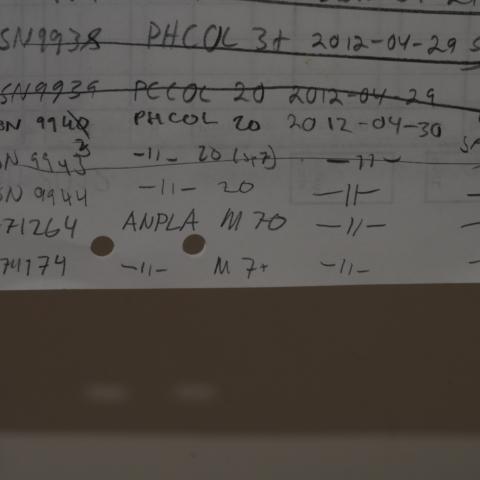 SN9938 PHCOL 3+ 2012-04-29 S
SN9939 PCCOL 20 2012-04-29
SN 9942 PHCOL 20 2012-04-30
SN 9943 -11- 20 -11-
SN 9944 -11- 20 -11-
71264 ANPLA M 70 -11-
74174 -11- M 7+ -11-